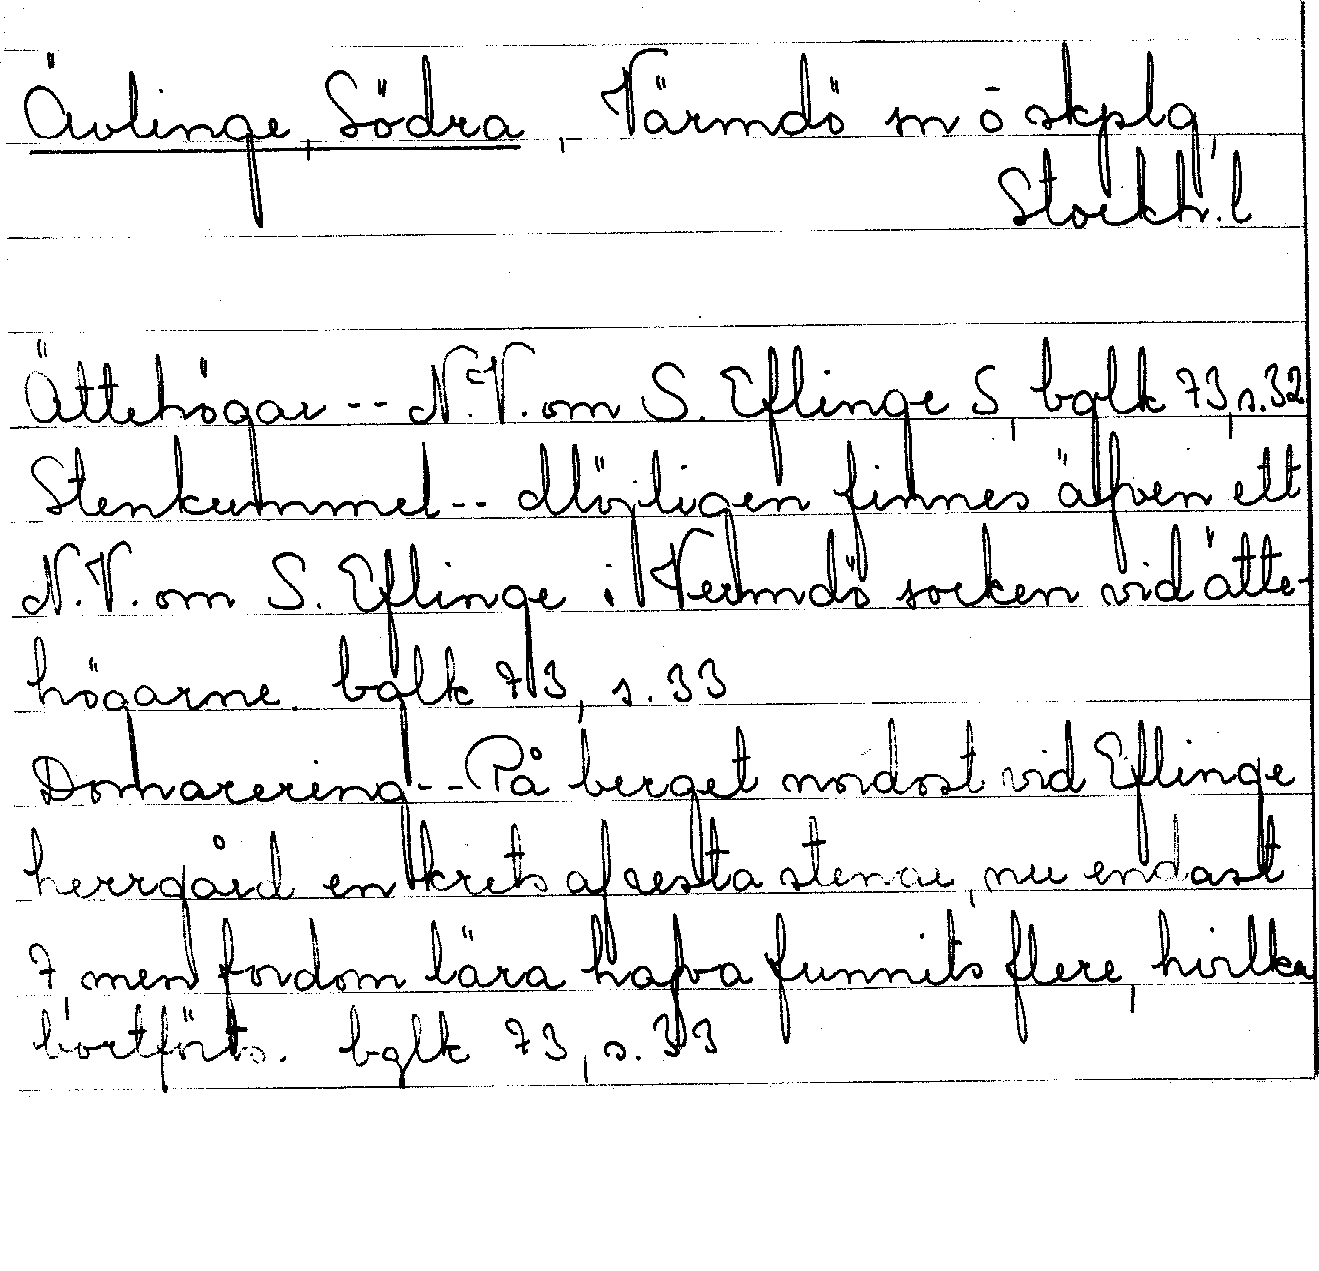 Ävlinge, Södra, Värmdö sn ö skplg,
Stockh. l
Ättehögar -- N.V. om S. Eflinge S, bglk 73, s. 32
Stenkummel -- Möjligen finnes äfven ett
N.V. om S. Eflinge i Vermdö socken vid ätte-
högarne. bglk 73, s. 33
Domarering -- På berget nordost vid Eflinge
herrgård en krets af resta stenar, nu endast
7, men fordom lära hafva funnits flere, hvilka
bortförts. bglk 73, s. 33